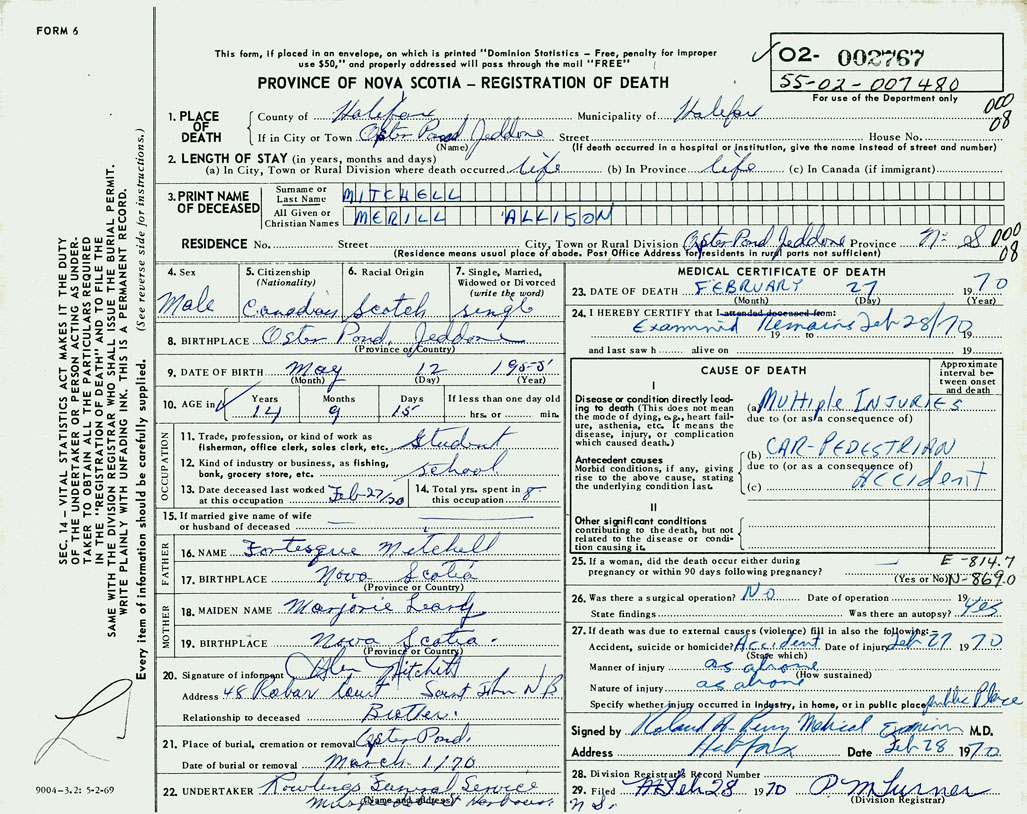 FORM 6
This form, if placed in an envelope, on which is printed "Dominion Statistics – Free, penalty for improper
use $50," and properly addressed will pass through the mail "FREE"
PROVINCE OF NOVA SCOTIA – REGISTRATION OF DEATH
02- 002767
55-02-007480
For use of the Department only
000
08
SEC. 14 – VITAL STATISTICS ACT MAKES IT THE DUTY
OF THE UNDERTAKER OR PERSON ACTING AS UNDER-
TAKER TO OBTAIN ALL THE PARTICULARS REQUIRED
IN THE "REGISTRATION OF DEATH" AND TO FILE THE
SAME WITH THE DIVISION REGISTRAR WHO SHALL ISSUE THE BURIAL PERMIT.
WRITE PLAINLY WITH UNFADING INK. THIS IS A PERMANENT RECORD.
Every item of information should be carefully supplied. (See reverse side for instructions.)
1. PLACE OF DEATH
County of Halifax Municipality of Halifax
If in City or Town Oster Pond Jeddore Street House No.
(Name) (If death occurred in a hospital or institution, give the name instead of street and number)
2. LENGTH OF STAY (in years, months and days)
(a) In City, Town or Rural Division where death occurred life (b) In Province life (c) In Canada (if immigrant)
3. PRINT NAME OF DECEASED
Surname or Last Name MITCHELL
All Given or Christian Names MERILL ALLISON
RESIDENCE No. Street City, Town or Rural Division Oyster Pond Jeddore Province N. S
000
08
(Residence means usual place of abode. Post Office Address for residents in rural parts not sufficient)
4. Sex
Male
5. Citizenship
(Nationality)
Canadian
6. Racial Origin
Scotch
7. Single, Married,
Widowed or Divorced
(write the word)
single
8. BIRTHPLACE Oster Pond, Jeddore
(Province or Country)
9. DATE OF BIRTH May 12 1955
(Month) (Day) (Year)
10. AGE in Years Months Days If less than one day old
14 9 15 hrs. or min.
OCCUPATION
11. Trade, profession, or kind of work as
fisherman, office clerk, sales clerk, etc. Student
12. Kind of industry or business, as fishing,
bank, grocery store, etc. school
13. Date deceased last worked
at this occupation Feb 27/70
14. Total yrs. spent in
this occupation 8
15. If married give name of wife
or husband of deceased
FATHER
16. NAME Fortesque Mitchell
17. BIRTHPLACE Nova Scotia
(Province or Country)
MOTHER
18. MAIDEN NAME Marjorie Leary
19. BIRTHPLACE Nova Scotia.
(Province or Country)
20. Signature of informant Mitchell
Address 48 Court Saint John N B
Relationship to deceased Brother.
21. Place of burial, cremation or removal Oyster Pond.
Date of burial or removal March 1/70
22. UNDERTAKER Rowlings Funeral Service
(Name and address) Harbour
N S.
9004-3.2: 5-2-69
MEDICAL CERTIFICATE OF DEATH
23. DATE OF DEATH FEBRUARY 27 1970
(Month) (Day) (Year)
24. I HEREBY CERTIFY that I attended deceased from:
Examined Remains Feb 28/70
19 to 19
and last saw h alive on 19
CAUSE OF DEATH
Approximate
interval be-
tween onset
and death
I
Disease or condition directly lead-
ing to death (This does not mean
the mode of dying, e.g., heart fail-
ure, asthenia, etc. It means the
disease, injury, or complication
which caused death.)
(a) MULTIPLE INJURIES
due to (or as a consequence of)
Antecedent causes
Morbid conditions, if any, giving
rise to the above cause, stating
the underlying condition last.
(b) CAR-PEDESTRIAN
due to (or as a consequence of)
(c) Accident
II
Other significant conditions
contributing to the death, but not
related to the disease or condi-
tion causing it.
25. If a woman, did the death occur either during
pregnancy or within 90 days following pregnancy? (Yes or No)
E-814.7
N-869.0
26. Was there a surgical operation? No Date of operation 19
State findings Was there an autopsy? Yes
27. If death was due to external causes (violence) fill in also the following:
Accident, suicide or homicide? Accident Date of injury Feb 27 1970
(State which)
Manner of injury as above
(How sustained)
Nature of injury as above
Specify whether injury occurred in industry, in home, or in public place public Place
Signed by Roland H Perry Medical Examiner M.D.
Address Halifax Date Feb 28 1970
28. Division Registrar's Record Number
29. Filed Feb 28 1970 P M Turner
(Division Registrar)